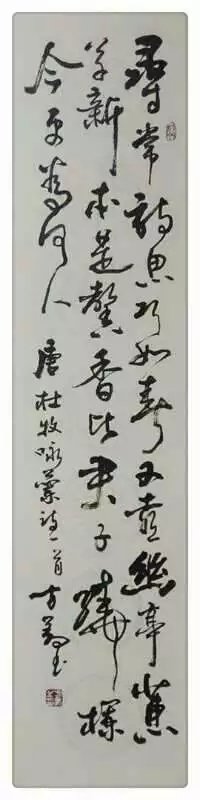 尋常詩思巧如春又喜幽亭蕙
草新本是馨香比君子繞欄
今更為何人 唐杜牧咏蘭詩一首 方玉